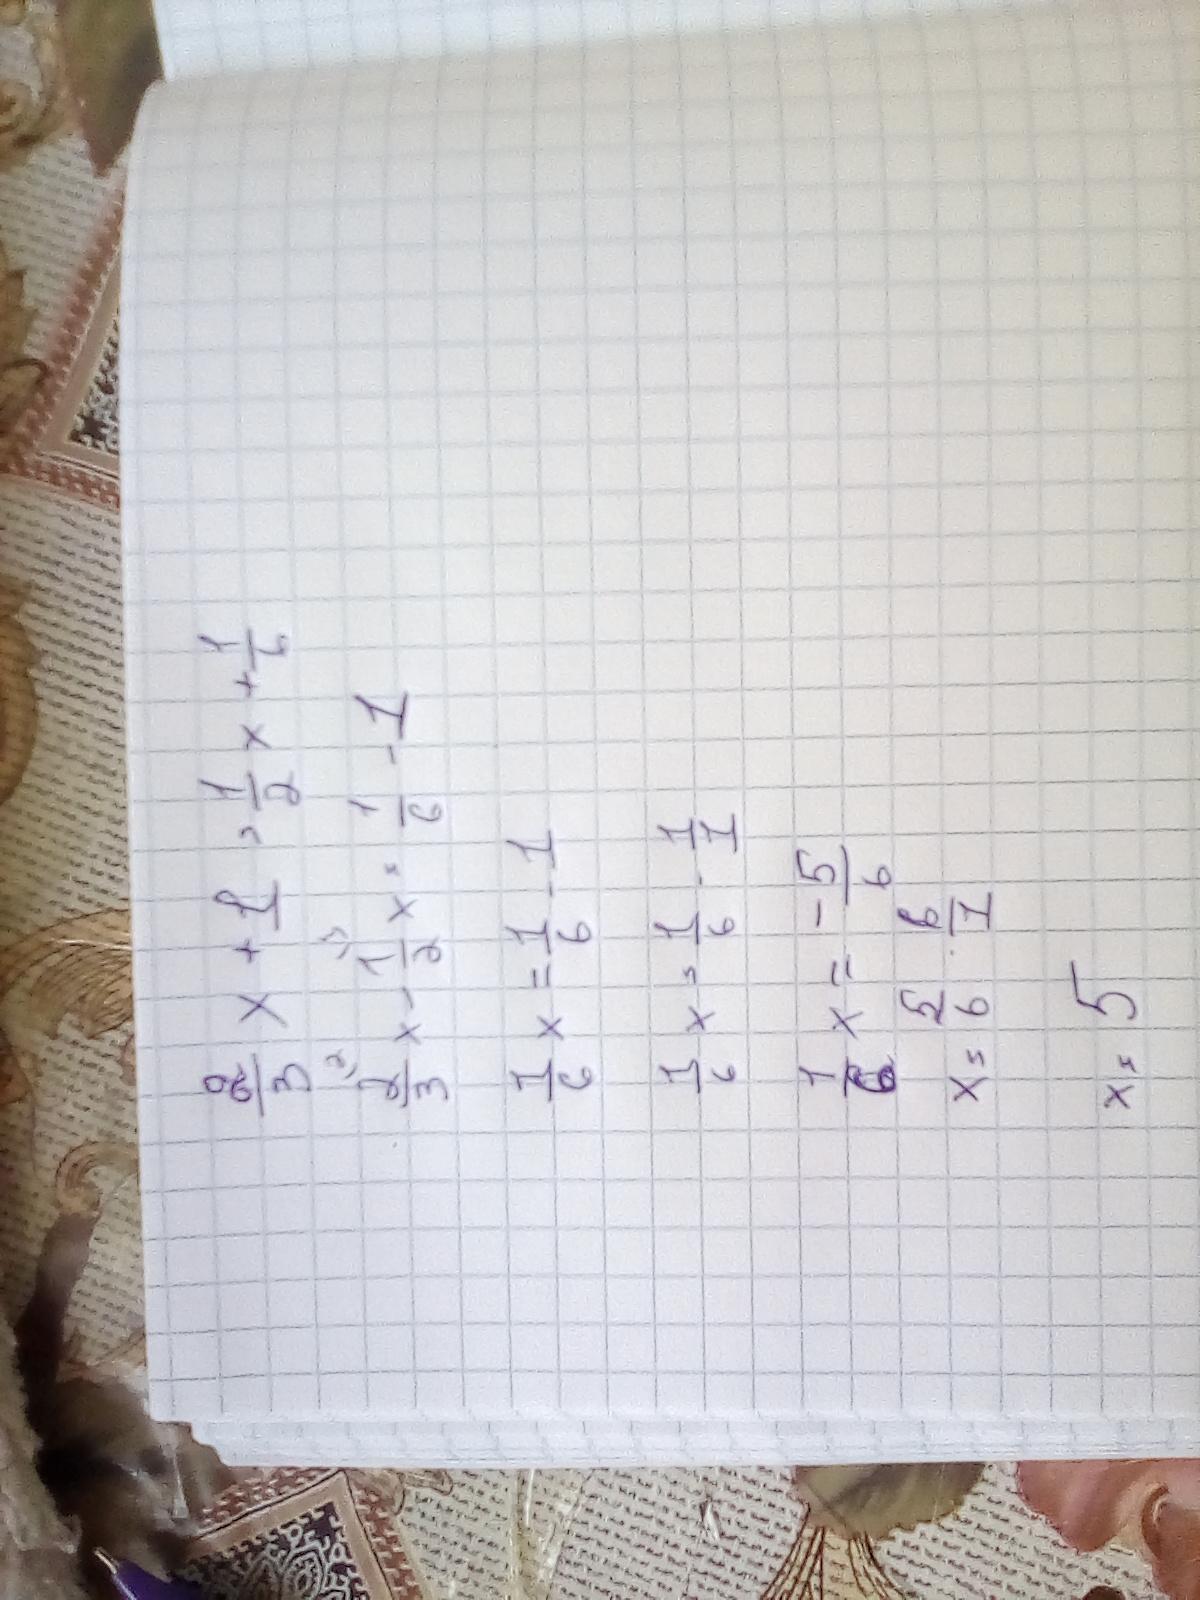 2/3 x + 1 = 1/2 x + 1/6
2/3 x - 1/2 x = 1/6 - 1
1/6 x = 1/6 - 1
1/6 x = 1/6 - 1/1
1/6 x = - 5/6
x = 5/6 · 6/1
x = 5